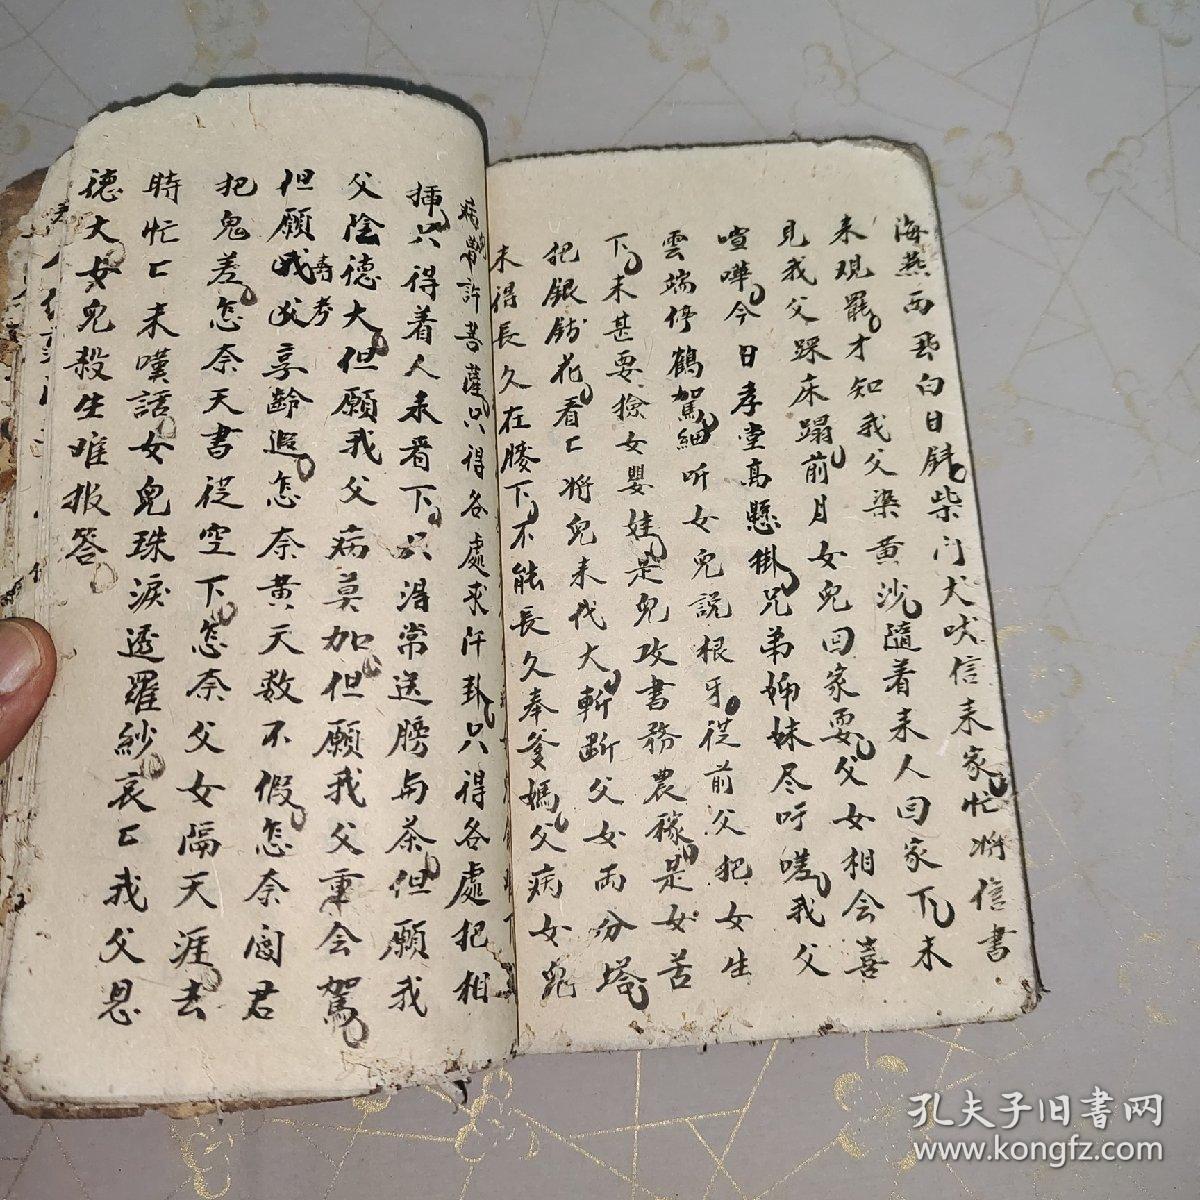 海燕西飛白日斜柴门犬吠信来家忙將信書
来現罷才知我父染黄沙隨着来人回家下未
見我父踩床蹋前月女兒回家耍父女相会喜
喧嘩今日孝堂高懸掛兄弟姊妹尽吁嗟我父
雲端停鶴駕細听女兒説根牙從前父把女生
下未甚要撿女嬰娃是兒攻書務農稼是女苦
把銀釵花看匕將兒来代大斬断父女両分塔
未得長久在膝下不能長久奉爹媽父病女兒
病常許菩薩只得各處求仟卦只得各處把相
揷只得着人来看下只得常送膀与茶但願我
父陰德大但願我父病莫加但願我父重会駕
但願我父壽考享齡遐怎奈黄天数不假怎奈閻君
把鬼差怎奈天書從空下怎奈父女隔天涯去
時忙匕未嘆話女兒珠淚透羅紗哀匕我父恩
德大女兒殺生难报答
孔夫子旧書网
www.kongfz.com